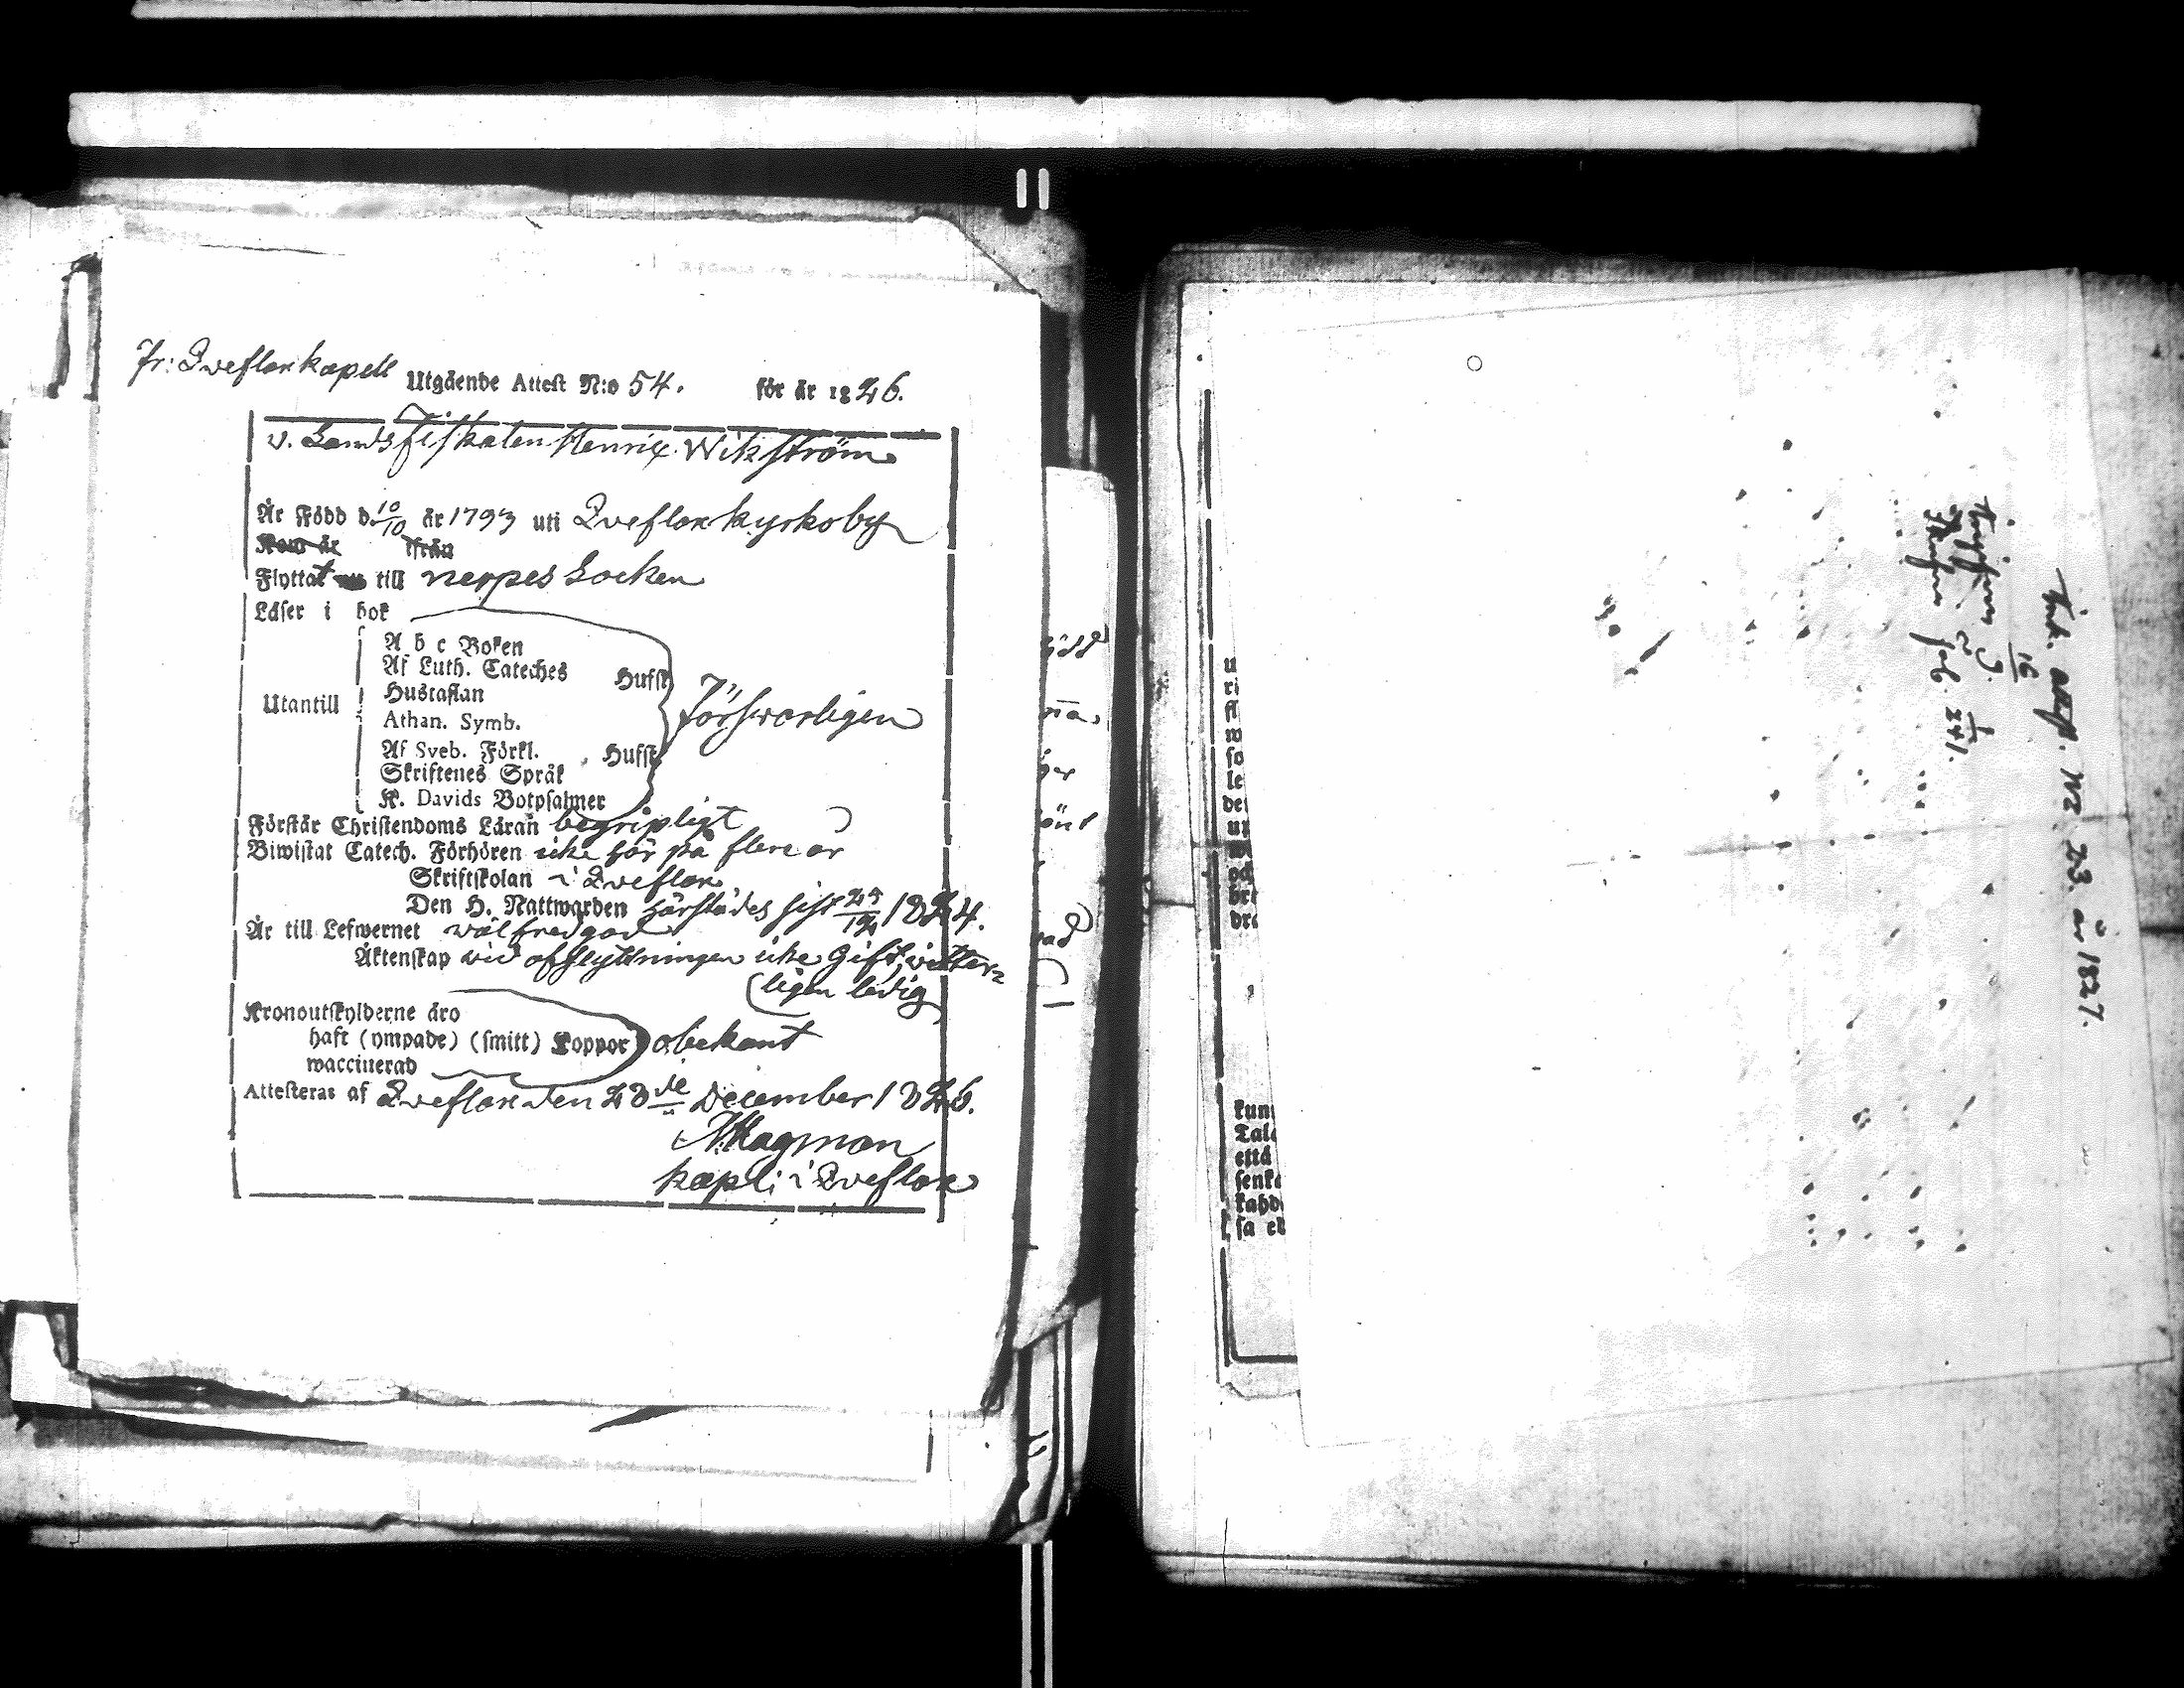 Fr: Qveflax kapell Utgående Attest N:o 54. för år 1826.
v. Landsfiskalen Henric Wikström
Är Född d. 10/10 år 1793 uti Qveflax kyrkoby
Kom år ifrån
Flyttat till nerpes Socken
Läser i bok
A b c Boken
Af Luth. Cateches Hufst
Hustaflan
Utantill
Athan. Symb.
Försvarligen
Af Sveb. Förkl. Hufst
Skriftenes Språk
K. Davids Botpsalmer
Förstår Christendoms Läran begripligt
Biwistat Catech. Förhören icke här på flere år
Skriftskolan i Qveflax
Den H. Nattwarden härstädes sist 1824.
Är till Lefwernet wälfredgad
Äktenskap vid afflyttningen icke Gift, vitter=
ligen ledig
Kronoutskylderne äro
haft (ympade) (smitt) Koppor obekant
waccinerad
Attesteras af Qveflax den 28de December 1826.
N. Hagman
kapl: i Qveflax
Ink. att. N2 23. år 1827.
16
fol. 241.
kun
Tal
että
senk
kahd
sa